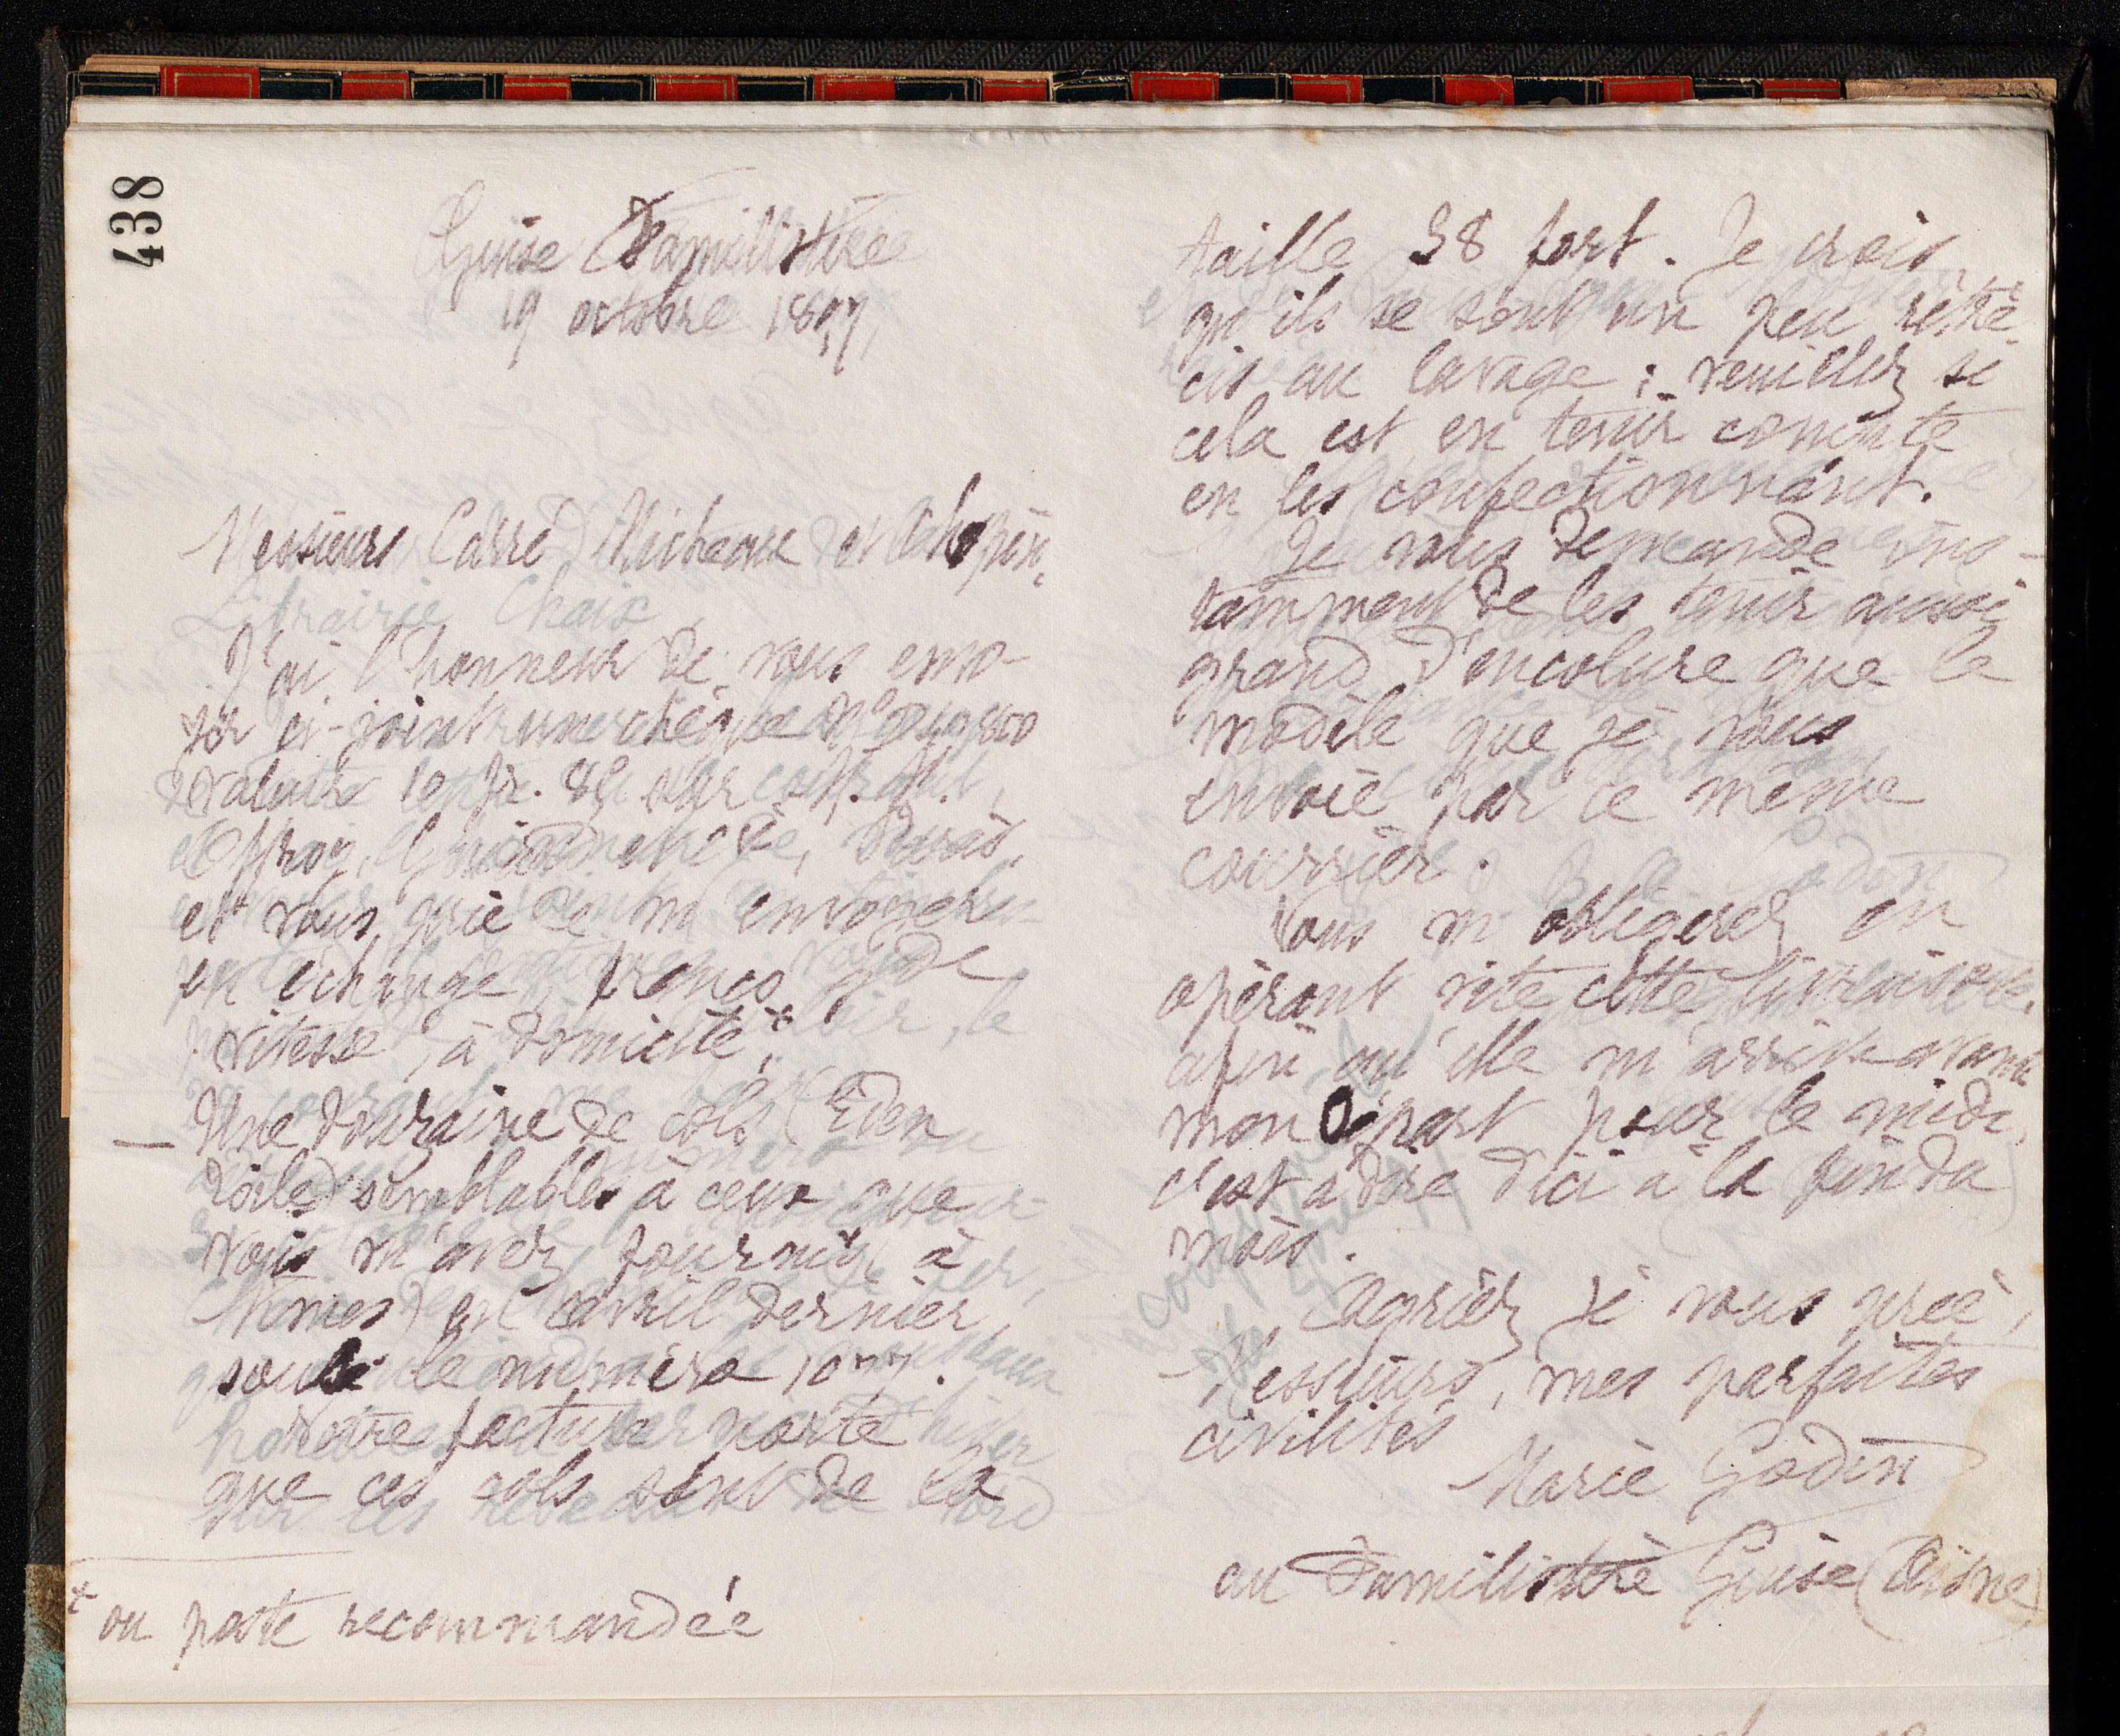 438
Guise Familistère
19 octobre 1897
Messieurs Carré, Micheaux et Chopin,
J'ai l'honneur de vous envo-
yer ci-joint un chèque N°
valeur 10 fr. 85 sur
Offroy, Guiard et Cie, Paris,
et vous prie de m'envoyer
en échange, franco, gde
vitesse, à domicile*,
— Une douzaine de cols (Eden
toile) semblables à ceux que
vous m'avez fournis (à
Nîmes) en avril dernier,
sous le numéro 1077.
Votre facture porte
que ces cols sont de la
* ou poste recommandée
taille 38 fort. Je crois
qu'ils se sont un peu rétré-
cis au lavage ; veuillez si
cela est en tenir compte
en les confectionnant.
Je vous demande ins-
tamment de les tenir aussi
grand d'encolure que le
modèle que je vous
envoie par ce même
courrier.
Vous m'obligerez en
opérant vite cette livraison,
afin qu'elle m'arrive avant
mon départ pour le midi,
c'est à dire d'ici à la fin du
mois.
Agréez je vous prie,
Messieurs, mes parfaites
civilités
Marie Godin
au Familistère Guise (Aisne)